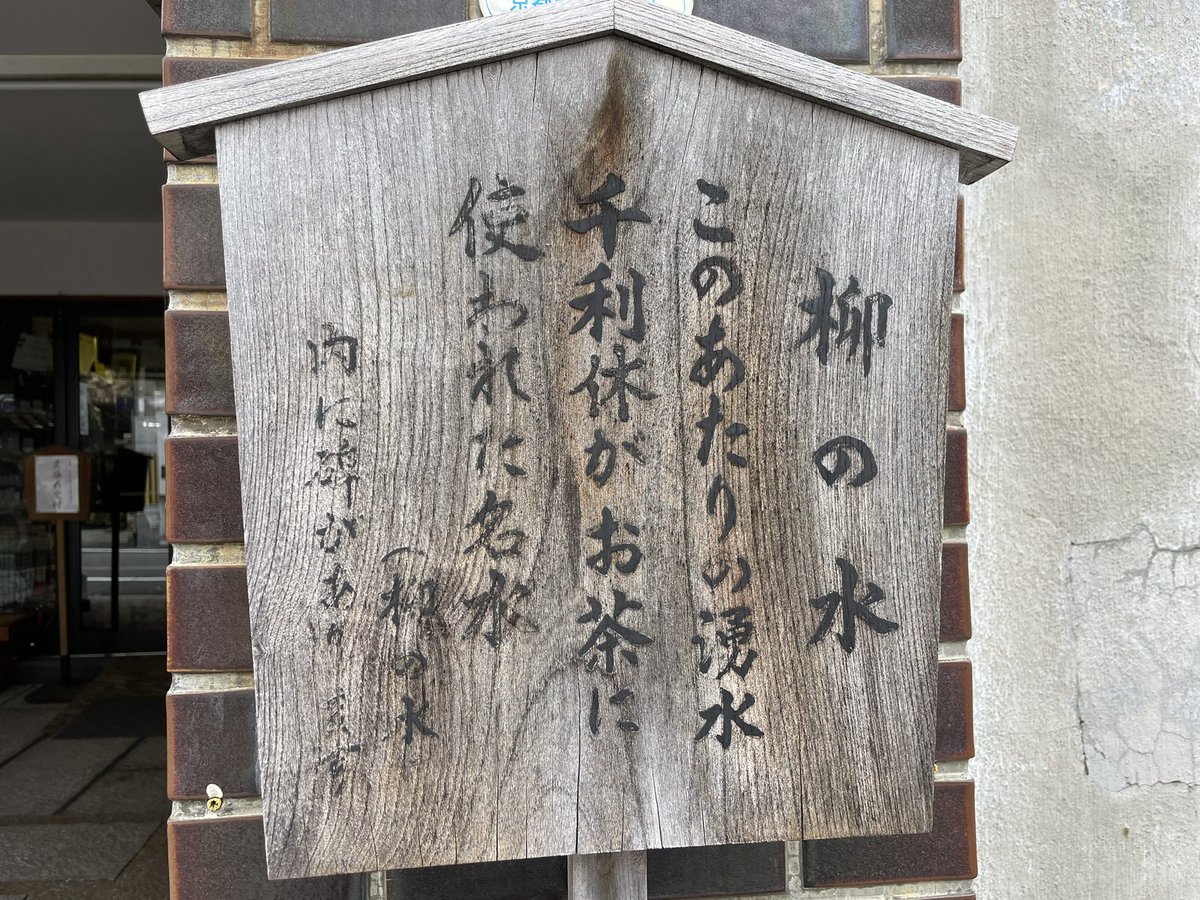 柳の水
このあたりの湧水
千利休がお茶に
使われた名水
(柳の水
内に碑があり
京都